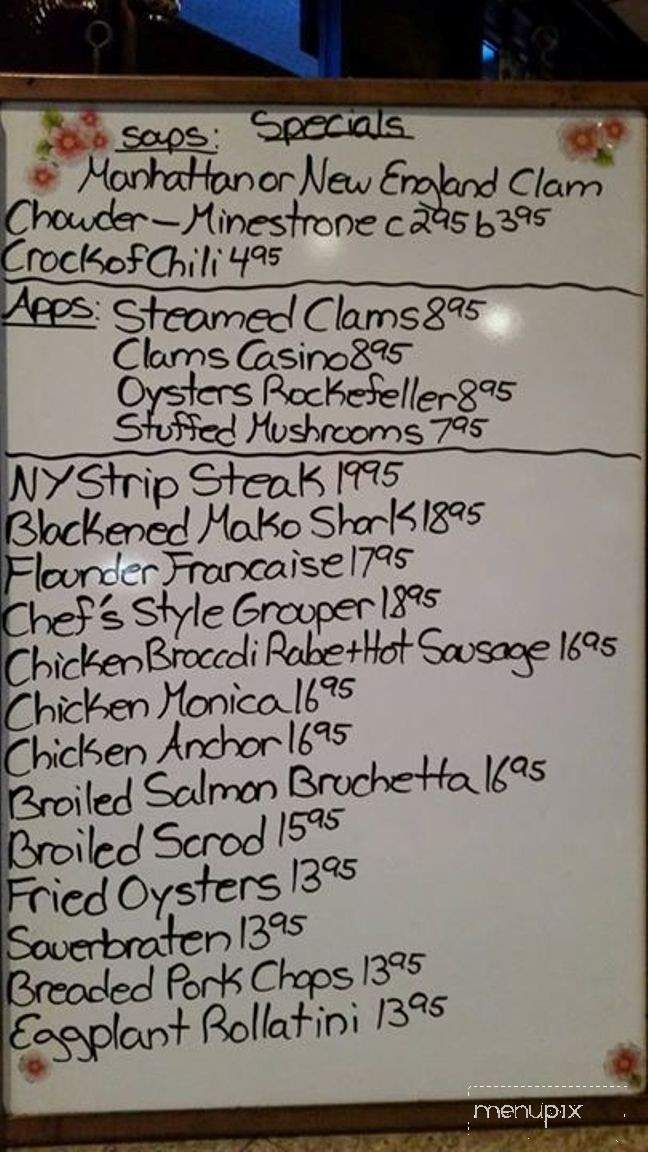 Specials
soups:
Manhattan or New England Clam
Chowder - Minestrone c 295 b 395
Crock of Chili 495
Apps: Steamed Clams 895
Clams Casino 895
Oysters Rockefeller 895
Stuffed Mushrooms 795
NY Strip Steak 1995
Blackened Mako Shark 1895
Flounder Francaise 1795
Chef's Style Grouper 1895
Chicken Broccoli Rabe + Hot Sausage 1695
Chicken Monica 1695
Chicken Anchor 1695
Broiled Salmon Bruchetta 1695
Broiled Scrod 1595
Fried Oysters 1395
Sauerbraten 1395
Breaded Pork Chops 1395
Eggplant Rollatini 1395
menupix